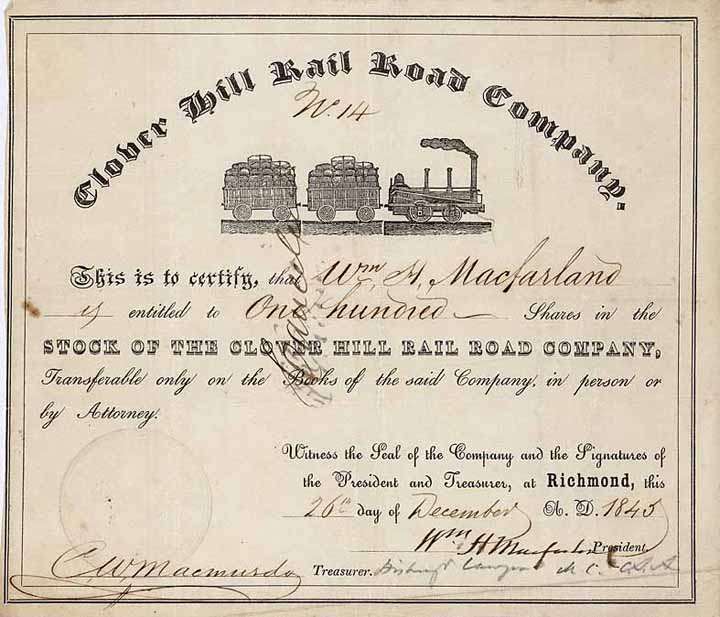 Clover Hill Rail Road Company.
No. 14
This is to certify, that Wm. H. Macfarland
is entitled to One hundred Shares in the
STOCK OF THE CLOVER HILL RAIL ROAD COMPANY,
Transferable only on the Books of the said Company, in person or
by Attorney.
Witness the Seal of the Company and the Signatures of
the President and Treasurer, at Richmond, this
26th day of December A. D. 1845
Wm. H. Macfarland President.
C. W. Macmurdo Treasurer.